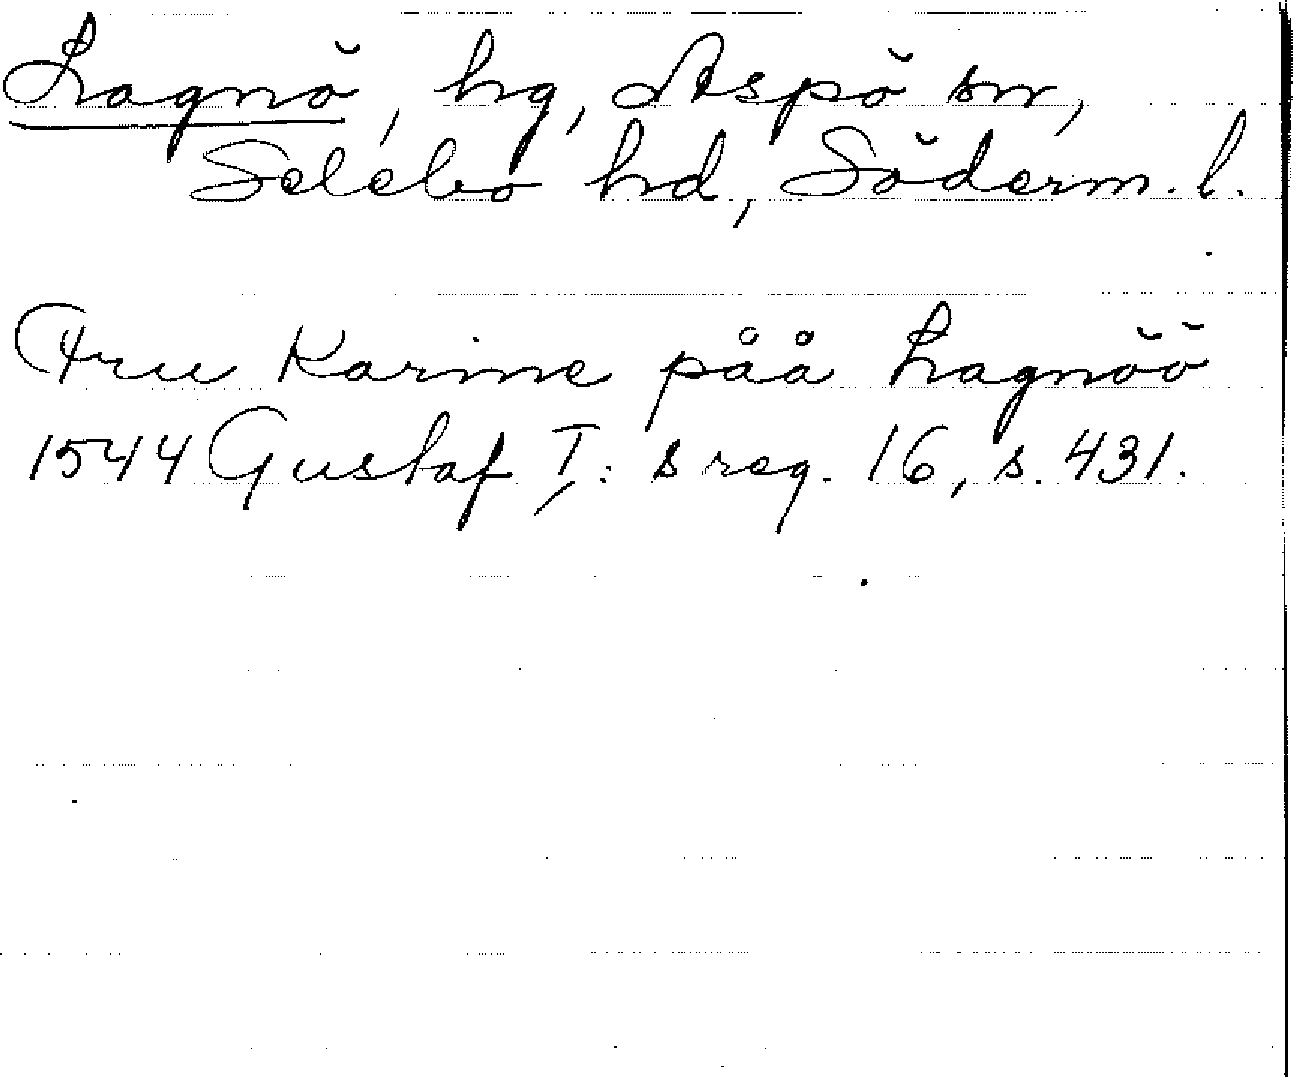 Lagnö, hg, Aspö sn,
Selebo hd, Söderm. l.
Fru Karine påå Lagnöö
1544 Gustaf I: s reg. 16, s. 431.